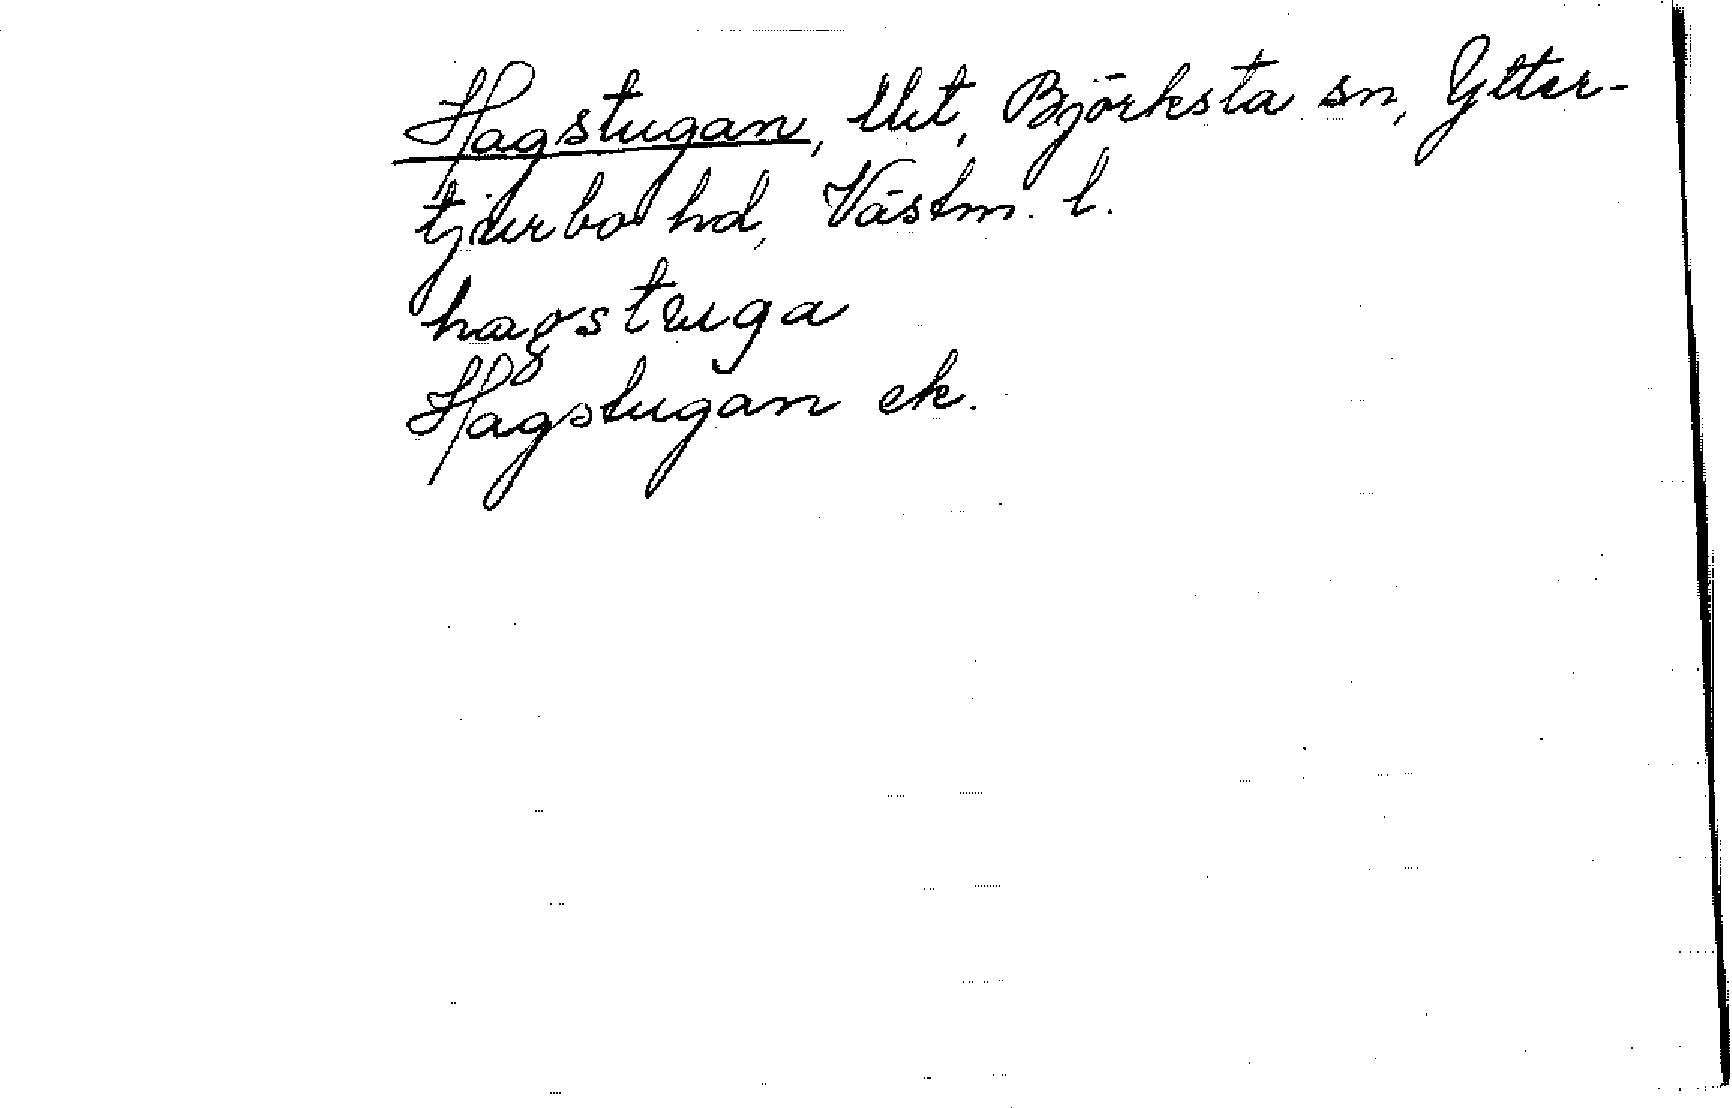 Hagstugan, lht, Björksta sn, Ytter-
tjurbo hd, Västm. l.
hagstuga
Hagstugan ek.